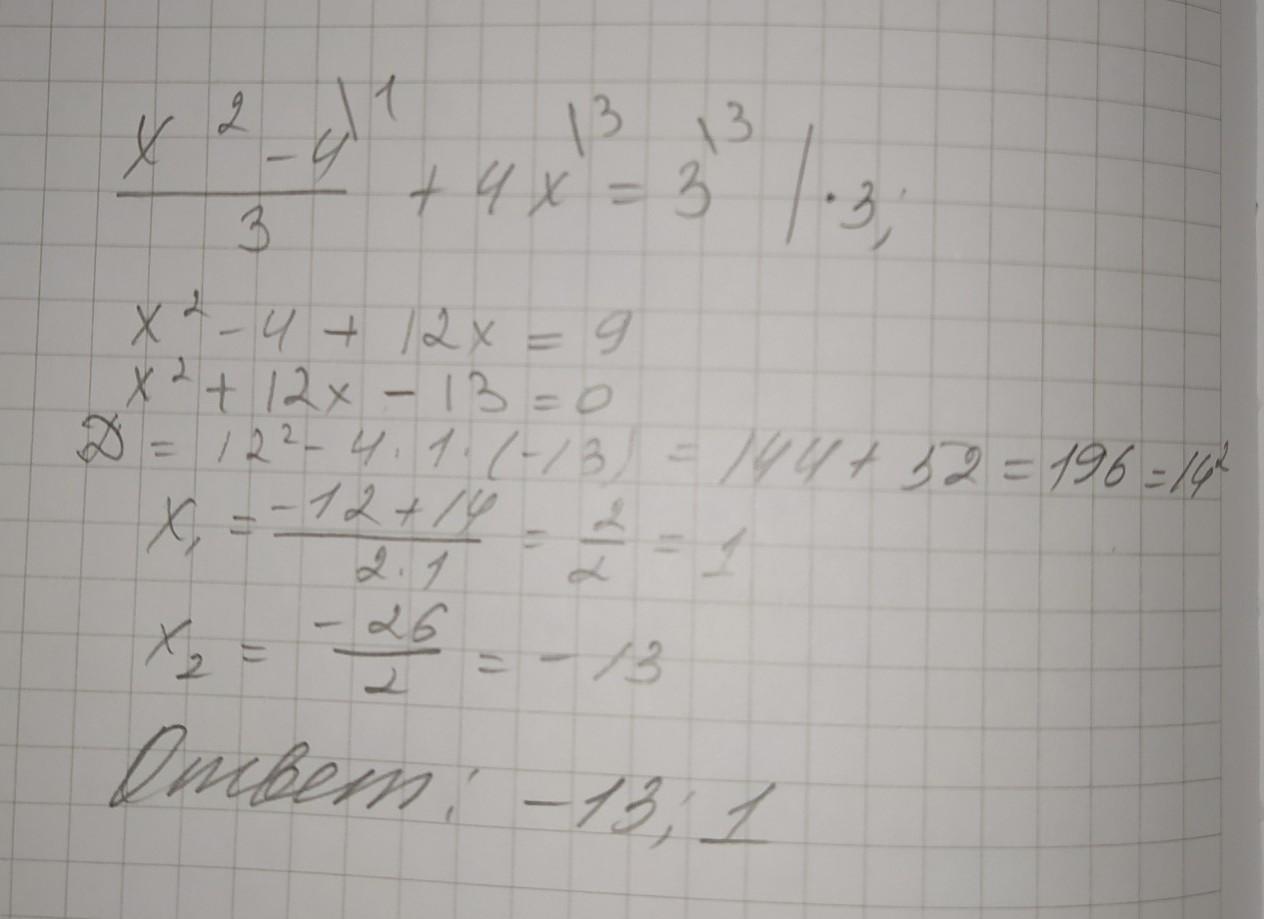 (x² - 4)\¹ / 3 + 4x\³ = 3\³ | · 3;
x² - 4 + 12x = 9
x² + 12x - 13 = 0
D = 12² - 4 · 1 · (-13) = 144 + 52 = 196 = 14²
x₁ = (-12 + 14) / (2 · 1) = 2/2 = 1
x₂ = -26/2 = -13
Ответ: -13; 1